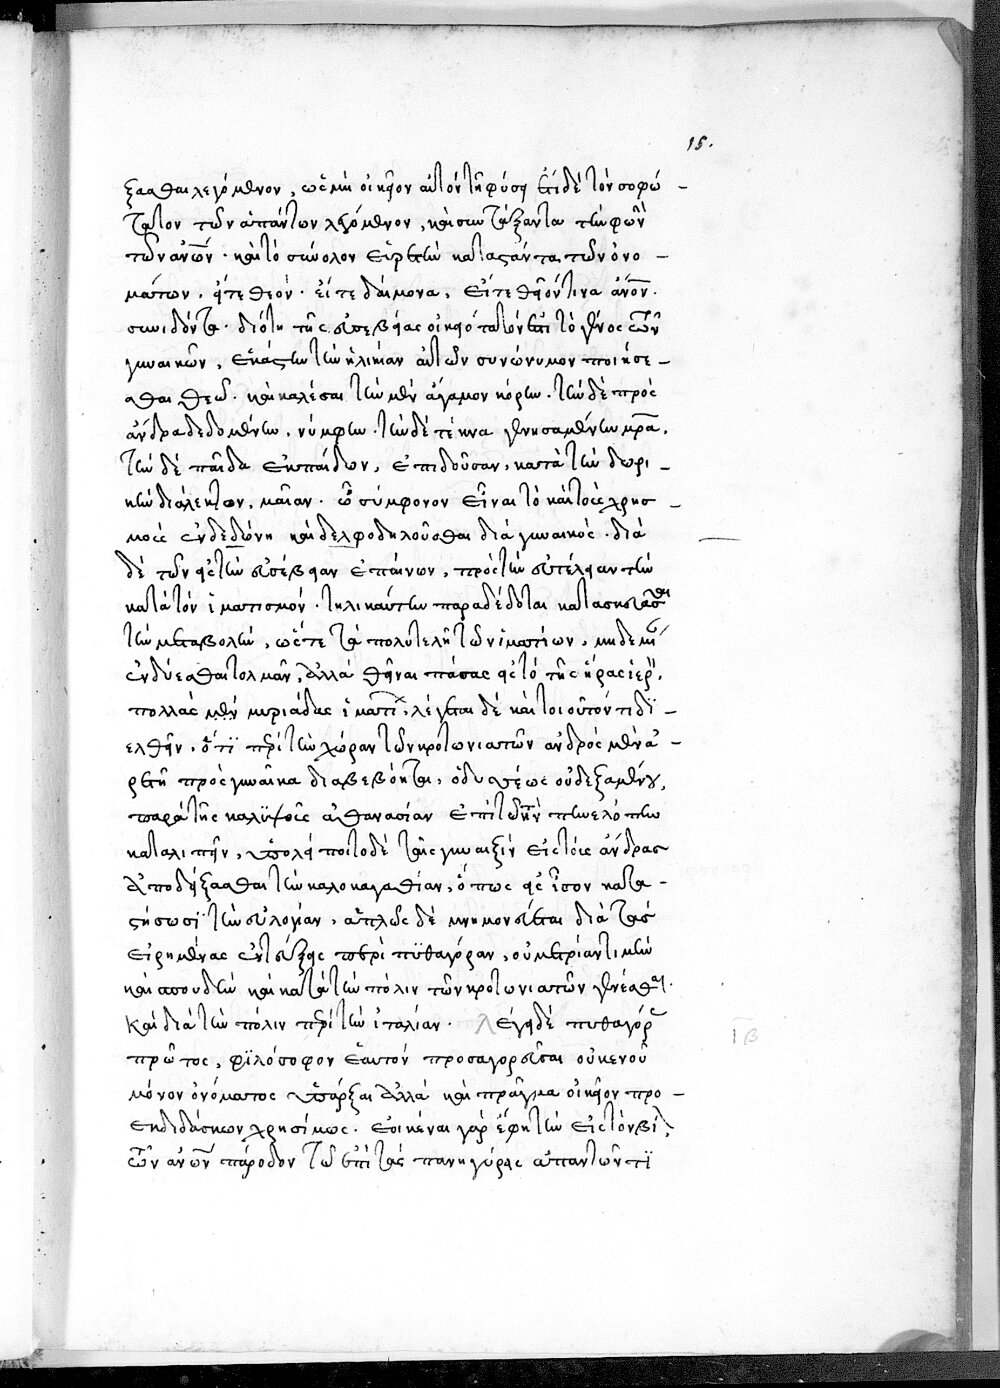 15.
ξασθαι λεγόμενον, ὡς μὴ οἰκεῖον αὐτὸν τῇ φύσει ἔτι δὲ τὸν σοφώ-
τατον τῶν ἁπάντων λεγόμενον, καὶ συντάξαντα τὴν φωνὴν
τῶν ἀνων· καὶ τὸ σύνολον εὑρετὴν καταστάντα τῶν ὀνο-
μάτων. εἴτε θεὸν· εἴτε δαίμονα, εἴτε θεῖόν τινα ἄνον.
συνιδόντα· διότι τῆς εὐσεβείας οἰκειότατόν ἐστι τὸ γένος τῶν
γυναικῶν, ἑκάστην τὴν ἡλικίαν αὐτῶν συνώνυμον ποιήσα-
σθαι θεῷ. καὶ καλέσαι τὴν μὲν ἄγαμον κόρην. τὴν δὲ πρὸς
ἄνδρα δεδομένην, νύμφην. τὴν δὲ τέκνα γεννησαμένην μρα.
τὴν δὲ παῖδα ἐκ παίδων, ἐπιδοῦσαν, κατὰ τὴν δωρι-
κὴν διάλεκτον, μαῖαν. ᾧ σύμφονον εἶναι τὸ καὶ τοὺς χρησ-
μοὺς ἐν δεδώνη καὶ δελφοδηλοῦσθαι διὰ γυναικός. διὰ
δὲ τῶν εἰς τὴν εὐσέβειαν ἐπαίνων, πρὸς τὴν εὐτέλειαν τὴν
κατὰ τὸν ἱματισμόν. τηλικαύτην παραδέδοται κατασκευάσαι
τὴν μεταβολὴν, ὥστε τὰ πολυτελῆ τῶν ἱματίων, μηδεμί
ἐνδύεσθαι τολμᾶν, ἀλλὰ θεῖναι πάσας εἰς τὸ τῆς ἥρας ἱερ,
πολλὰς μὲν μυριάδας ἱματί, λέγεται δὲ καὶ τοιοῦτόν τι δι-
ελθεῖν, ὅτι περὶ τὴν χώραν τῶν κροτωνιατῶν ἀνδρὸς μὲν ἀ-
ρετὴ πρὸς γυναῖκα διαβεβόηται, ὀδυσσέως οὐ δεξαμένου,
παρὰ τῆς καλυψοῦς ἀθανασίαν ἐπὶ τῷ τὴν πηνελόπην
καταλιπεῖν, ὑπολείποιτο δὲ ταῖς γυναιξὶν εἰς τοὺς ἄνδρας
ἀποδείξασθαι τὴν καλοκαγαθίαν, ὅπως εἰς ἴσον κατα-
στήσωσι τὴν εὐλογίαν, ἁπλῶς δὲ μνημονεύεται διὰ τὰς
εἰρημένας ἐντεύξεις περὶ πυθαγόραν, οὐ μετρίαν τιμὴν
καὶ σπουδὴν καὶ κατὰ τὴν πόλιν τῶν κροτωνιατῶν γενέσθαι·
καὶ διὰ τὴν πόλιν περὶ τὴν ἰταλίαν. λέγει δὲ πυθαγόρ
πρῶτος, φιλόσοφον ἑαυτὸν προσαγορεῦσαι οὐ κενοῦ
ιβ
μόνον ὀνόματος ὑπάρξαι ἀλλὰ καὶ πρᾶγμα οἰκεῖον προ-
εκδιδάσκων χρησίμως. ἐοικέναι γὰρ ἔφη τὴν εἰς τὸν βί
τῶν ἀνων πάροδον τῷ ἐπὶ τὰς πανηγύρεις ἀπαντῶντι